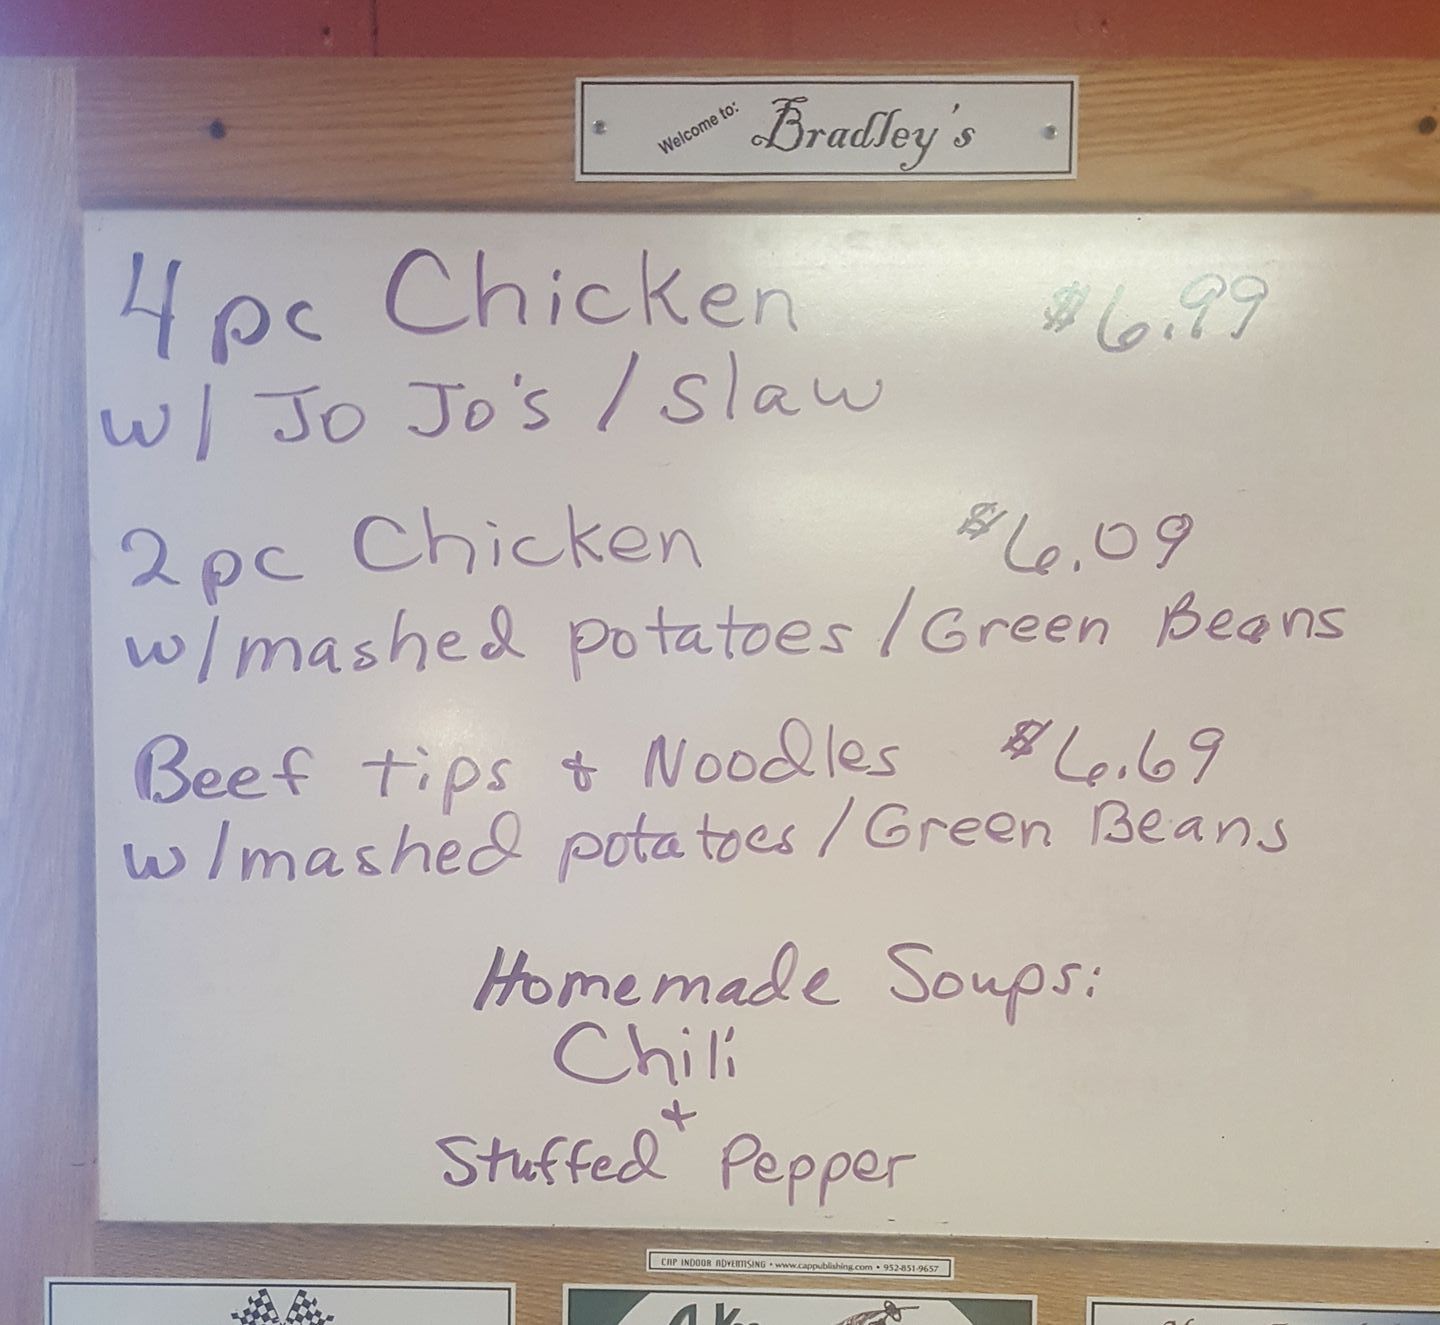 Welcome to: Bradley's
4 pc Chicken $6.99
w/ Jo Jo's / slaw
2 pc Chicken $6.09
w/mashed potatoes / Green Beans
Beef tips & Noodles $6.69
w/mashed potatoes / Green Beans
Homemade Soups:
Chili
&
Stuffed Pepper
CAP INDOOR ADVERTISING • www.cappublishing.com • 952-851-9657